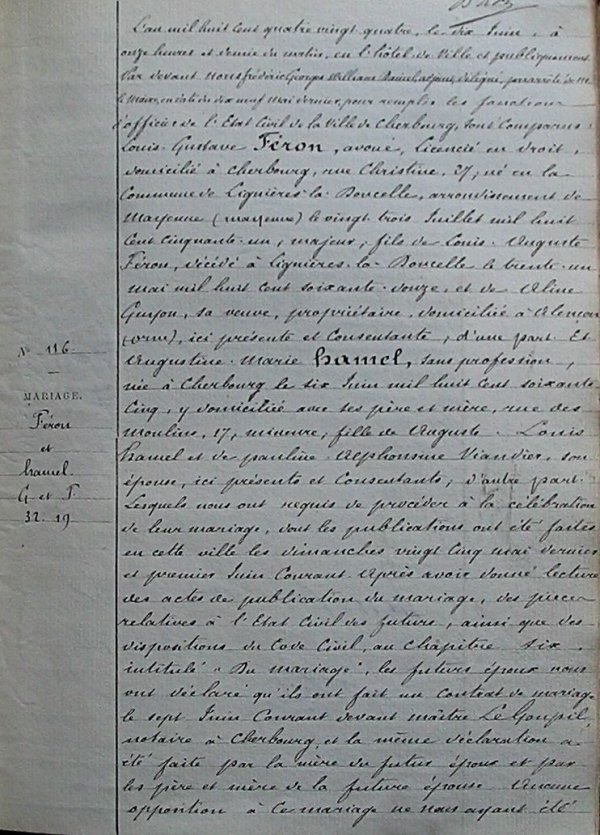 L'an mil huit cent quatre vingt quatre, le dix Juin, à
onze heures et demie du matin, en l'hôtel de Ville et publiquement
Par devant nous frédéric Georges William adjoint délégué, par arrêté de Mr
le Maire, en date du dix neuf Mai dernier, pour remplir les fonctions
d'officier de l'Etat Civil de la Ville de Cherbourg, sont Comparus:
Louis Gustave Féron, avoué, Licencié en droit,
domicilié à Cherbourg, rue Christine, 27, né en la
Commune de Lignières-la-Doucelle, arrondissement de
Mayenne (mayenne) le vingt trois Juillet mil huit
Cent Cinquante-un, majeur, fils de Louis Auguste
Féron, décédé à Lignières-la-Doucelle le trente-un
mai mil huit cent soixante-douze, et de Aline
Guyon, sa veuve, propriétaire, domiciliée à Alençon
(orne), ici présente et Consentante, d'une part. Et
Augustine Marie hamel, sans profession,
née à Cherbourg le six Juin mil huit Cent soixante
Cinq, y domiciliée avec ses père et mère, rue des
Moulins, 17, mineure, fille de Auguste Louis
hamel et de pauline Alphonsine Viandier, son
épouse, ici présents et Consentants, d'autre part.
Lesquels nous ont requis de procéder à la célébration
de leur mariage, dont les publications ont été faites
en cette ville les dimanches vingt Cinq mai dernier
et premier Juin Courant. Après avoir donné lecture
des actes de publication du mariage, des pièces
relatives à l'Etat Civil des futurs, ainsi que des
dispositions du Code Civil, au Chapitre six,
intitulé "Du mariage", les futurs époux nous
ont déclaré qu'ils ont fait un Contrat de mariage
le sept Juin Courant devant maître Le Goupil,
notaire à Cherbourg, et la même déclaration a
été faite par la mère du futur époux et par
les père et mère de la future épouse. Aucune
opposition à Ce mariage ne nous ayant été
N° 116
MARIAGE.
Féron
et
hamel
G et F
32. 19